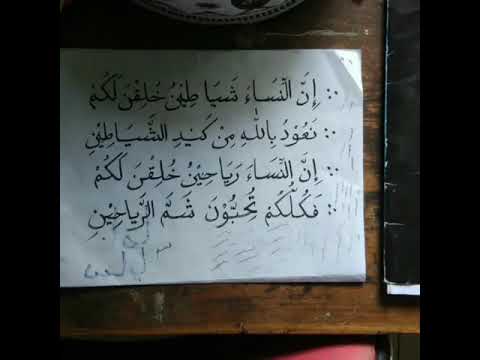 إِنَّ النِّسَاءَ شَيَاطِيْنُ خُلِقْنَ لَكُمْ
نَعُوْذُ بِاللّٰهِ مِنْ كَيْدِ الشَّيَاطِيْنِ
إِنَّ النِّسَاءَ رَيَاحِيْنُ خُلِقْنَ لَكُمْ
فَكُلُّكُمْ تُحِبُّوْنَ شَمَّ الرِّيَاحِيْنِ